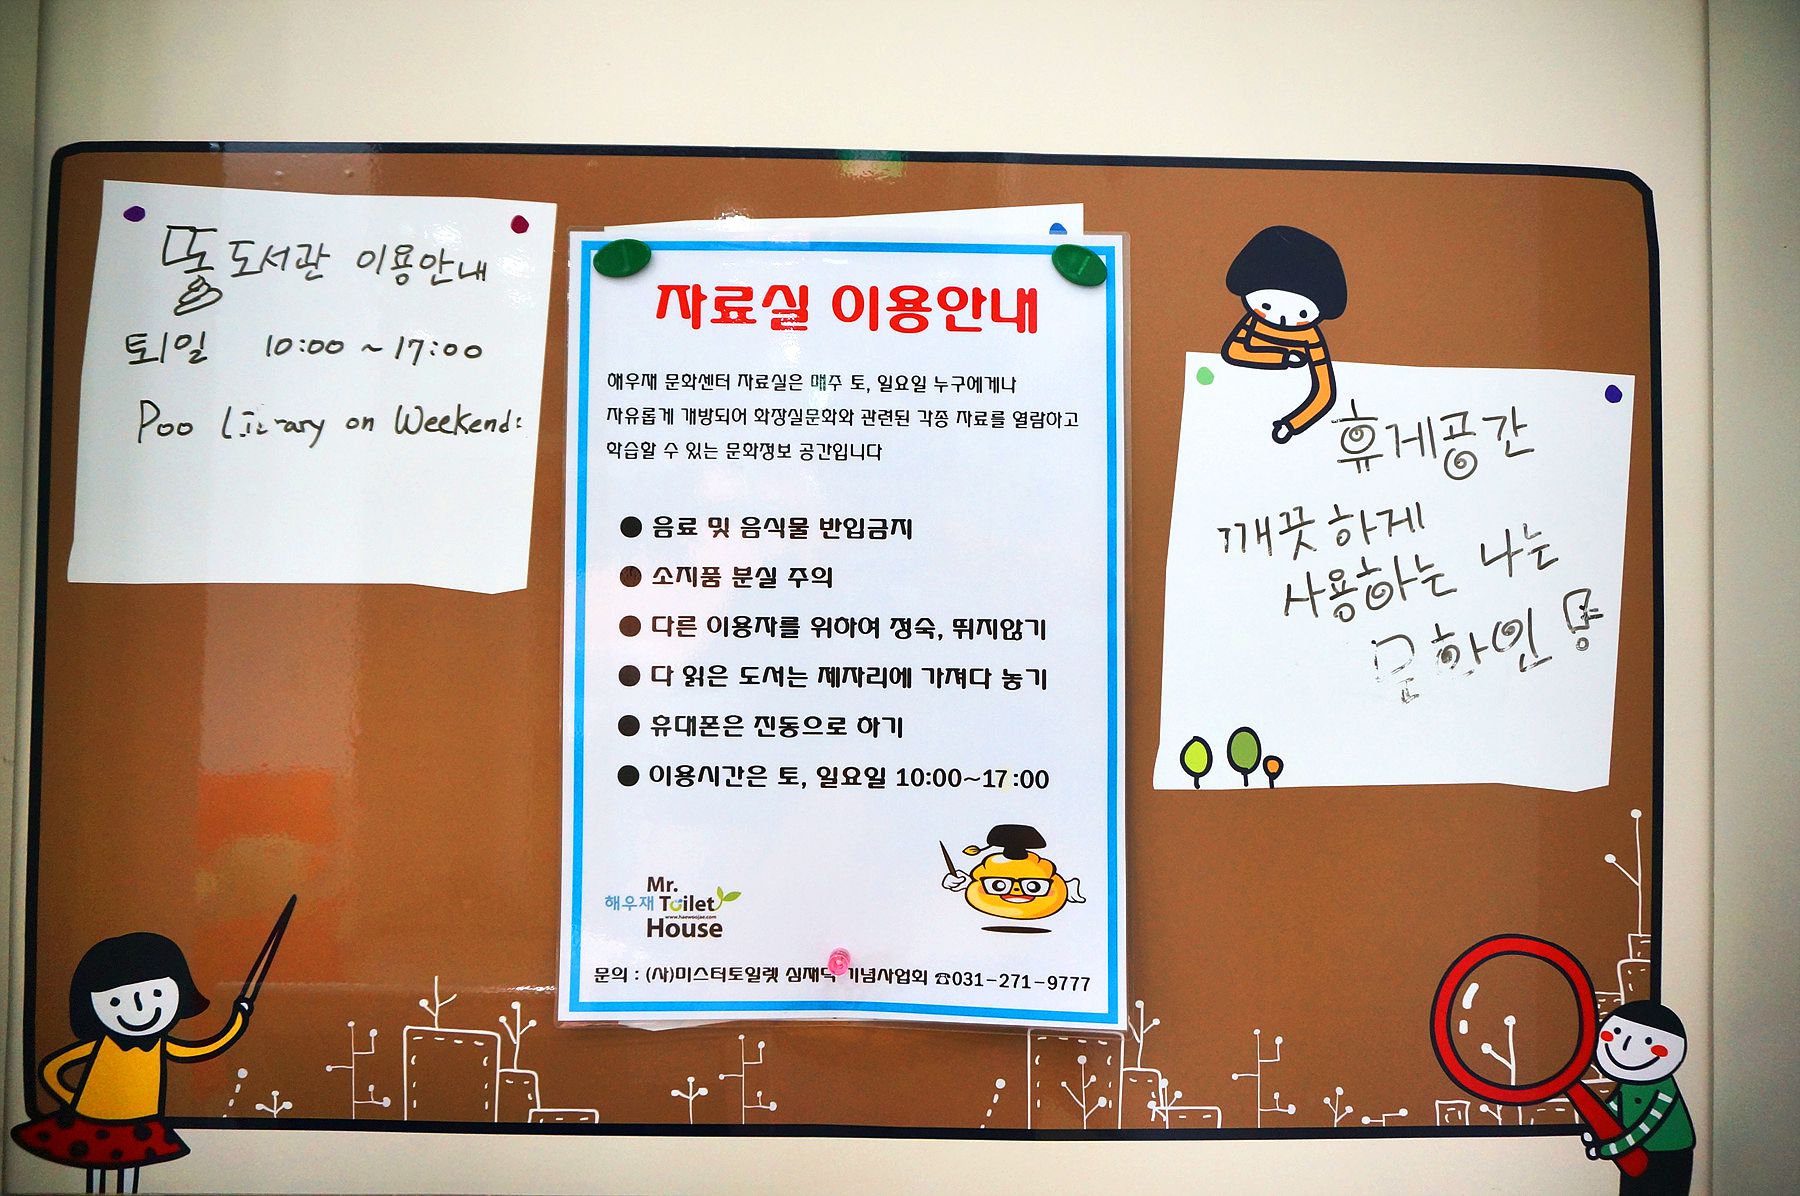 똥도서관 이용안내
토/일 10:00 ~ 17:00
Poo Library on Weekends
자료실 이용안내
해우재 문화센터 자료실은 매주 토, 일요일 누구에게나
자유롭게 개방되어 화장실문화와 관련된 각종 자료를 열람하고
학습할 수 있는 문화정보 공간입니다
● 음료 및 음식물 반입금지
● 소지품 분실 주의
● 다른 이용자를 위하여 정숙, 뛰지않기
● 다 읽은 도서는 제자리에 가져다 놓기
● 휴대폰은 진동으로 하기
● 이용시간은 토, 일요일 10:00~17:00
Mr.
해우재 Toilet
www.haewoojae.com
House
문의 : (사)미스터토일렛 심재덕 기념사업회 ☎031-271-9777
휴게공간
깨끗하게
사용하는 나는
문화인